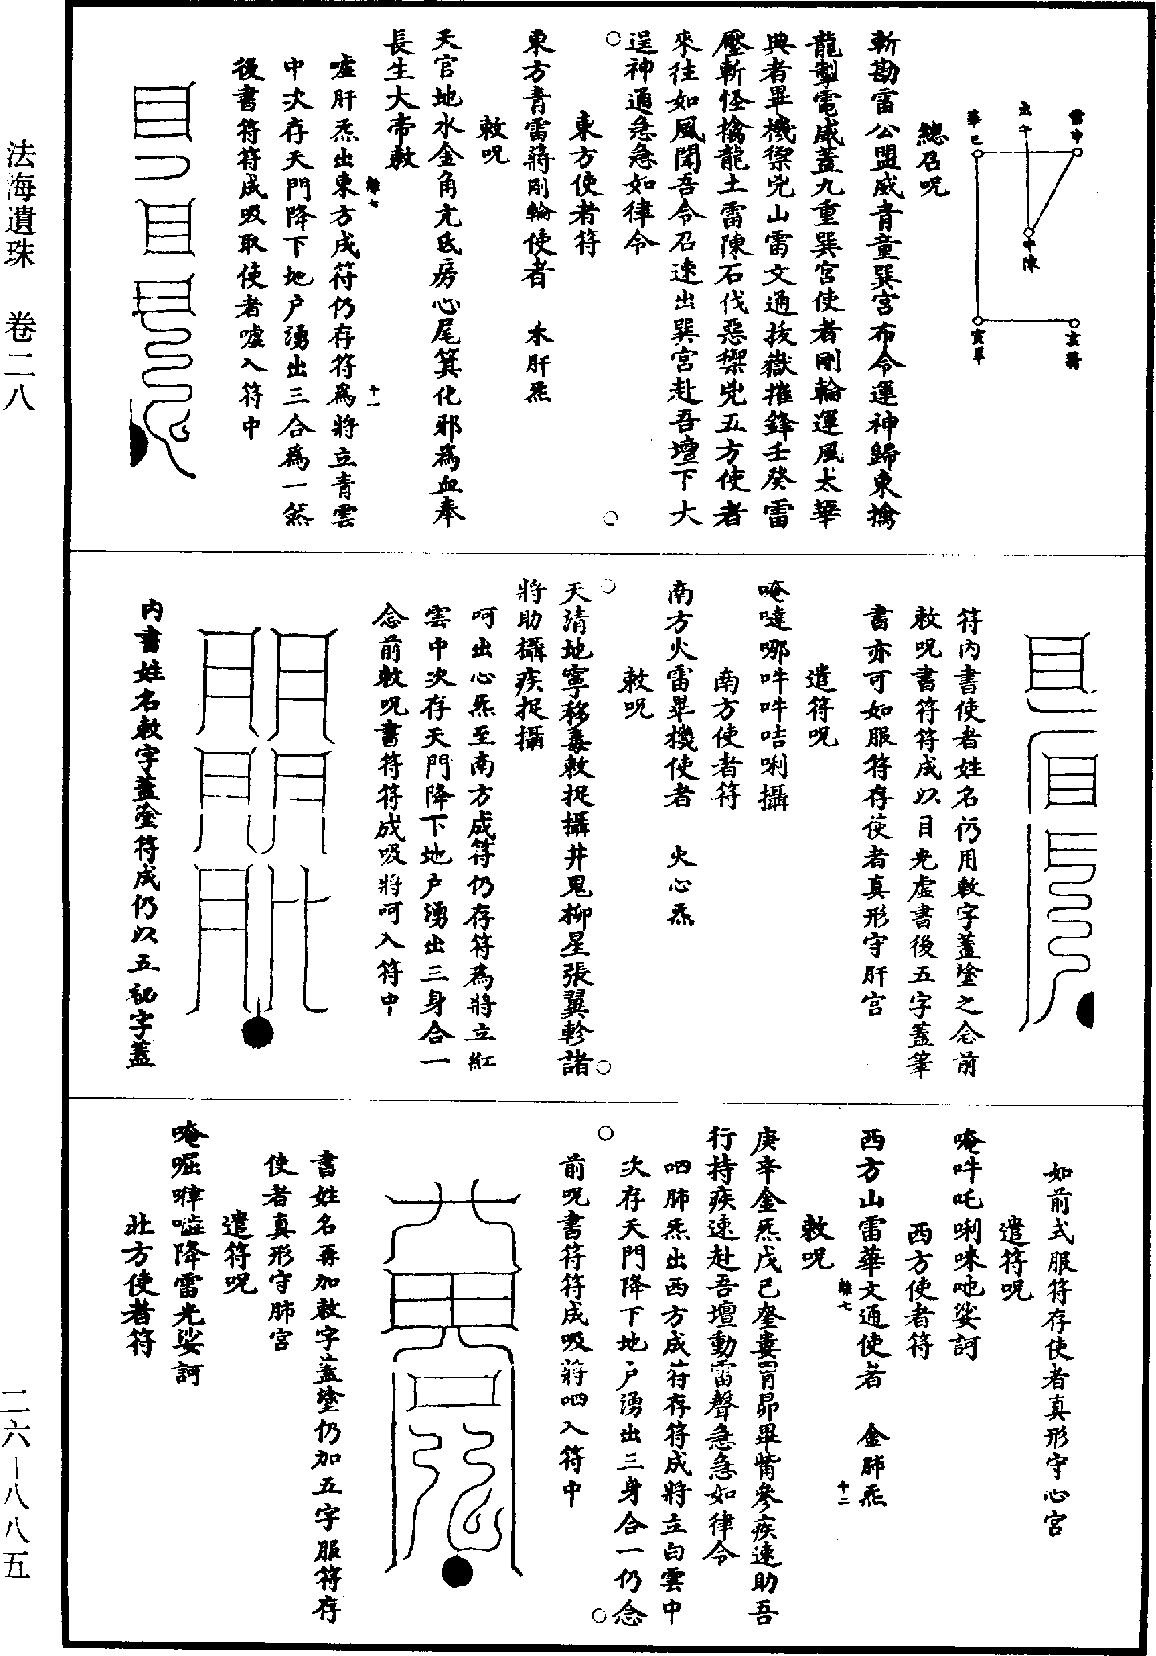 總召呪
斬勘雷公盟威青童巽宮布令運神歸東擒
龍掣電威蓋九重巽宮使者剛輪運風太華
典者畢機禦兇山雷文通拔嶽摧鋒壬癸雷
壓斬怪擒龍土雷陳石伐惡禦兇五方使者
來往如風聞吾令召速出巽宮赴吾壇下大
逞神通急急如律令
東方使者符
東方青雷蔣剛輪使者 木肝炁
敕呪
天官地水金角亢氐房心尾箕化邪為血奉
長生大帝敕
噓肝炁出東方成符仍存符為將立青雲
中次存天門降下地户湧出三合為一然
後書符符成吸取使者噓入符中
符内書使者姓名仍用敕字蓋塗之念前
敕呪書符符成以目光虛書後五字蓋筆
書亦可如服符存使者真形守肝宮
遣符呪
唵噠哪吽吽咭唎攝
南方使者符
南方火雷畢機使者 火心炁
敕呪
天清地寧移毒敕捉攝井鬼柳星張翼軫諸
將助攝疾捉攝
呵出心炁至南方成符仍存符為將立紅
雲中次存天門降下地户湧出三身合一
念前敕呪書符符成吸將呵入符中
内書姓名敕字蓋塗符成仍以五祕字蓋
如前式服符存使者真形守心宮
遣符呪
唵吽吒唎唻吔娑訶
西方使者符
西方山雷華文通使者 金肺炁
敕呪
庚辛金炁戊己奎婁胃昴畢觜參疾速助吾
行持疾速赴吾壇動雷聲急急如律令
呬肺炁出西方成符存符成將立白雲中
次存天門降下地户湧出三身合一仍念
前呪書符符成吸蔣呬入符中
書姓名再加敕字蓋塗仍加五字服符存
使者真形守肺宮
遣符呪
唵啒嘩噬降雷光娑訶
北方使者符
法海遺珠 卷二八
二六—八八五